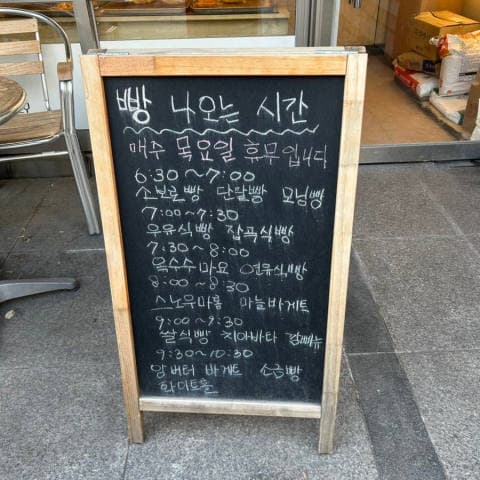 빵 나오는 시간
매주 목요일 휴무입니다
6:30~7:00
소보로빵 단팥빵 모닝빵
7:00~7:30
우유식빵 잡곡식빵
7:30~8:00
옥수수마요 연유식빵
8:00~8:30
스노우마롱 마늘바게트
9:00~9:30
쌀식빵 치아바타 깜빠뉴
9:30~10:30
앙버터 바게트 소금빵
화이트롤